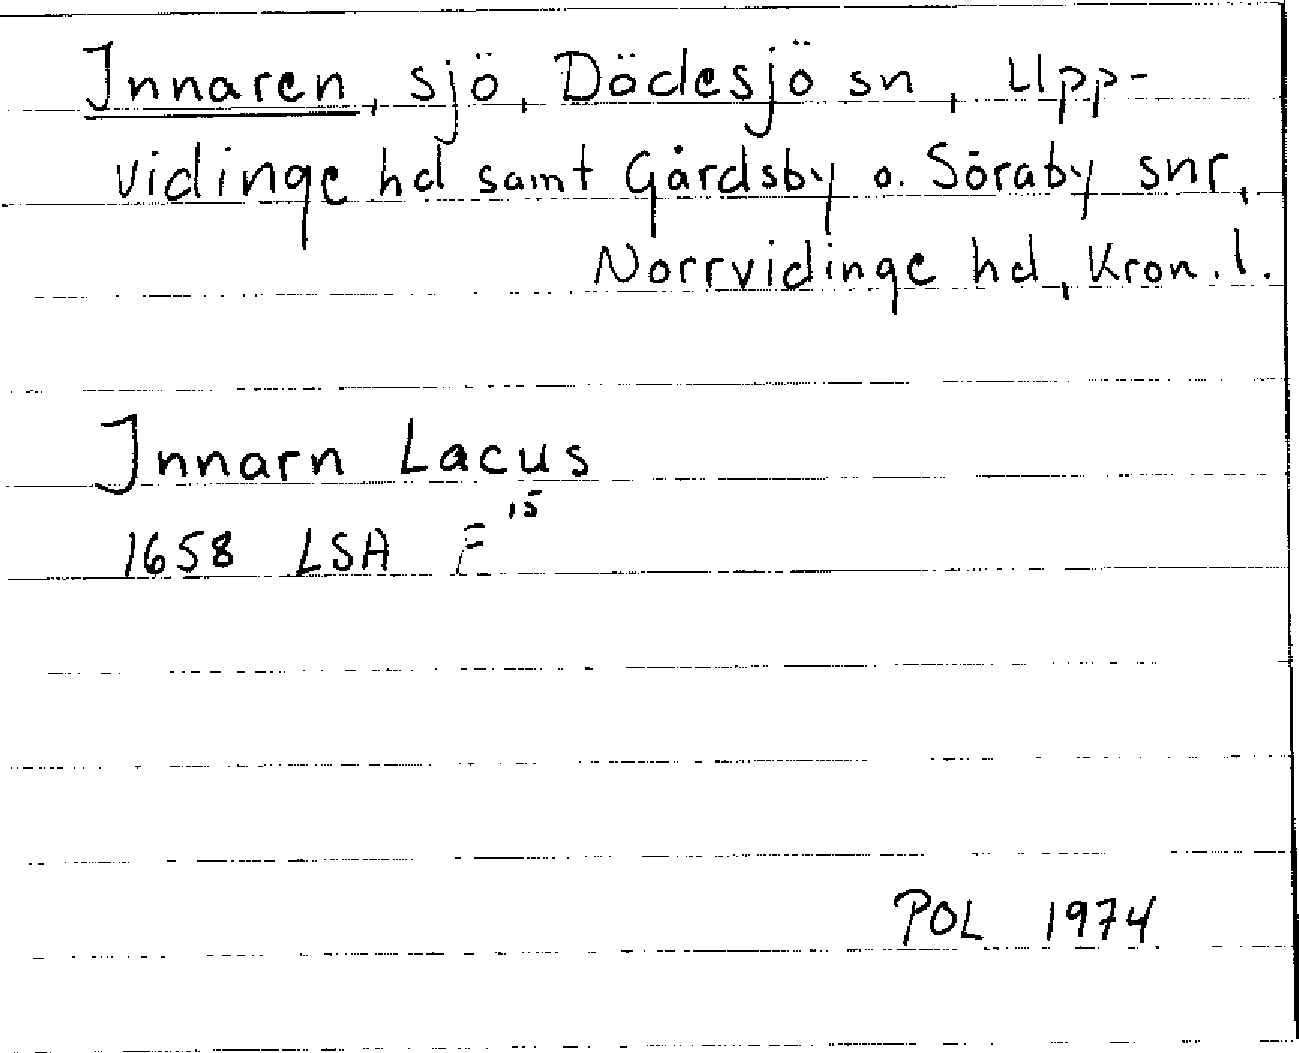 Innaren, sjö, Dädesjö sn, Upp-
vidinge hd samt Gårdsby o. Söraby snr,
Norrvidinge hd, Kron. l.
Innarn Lacus
1658 LSA E 15
POL 1974